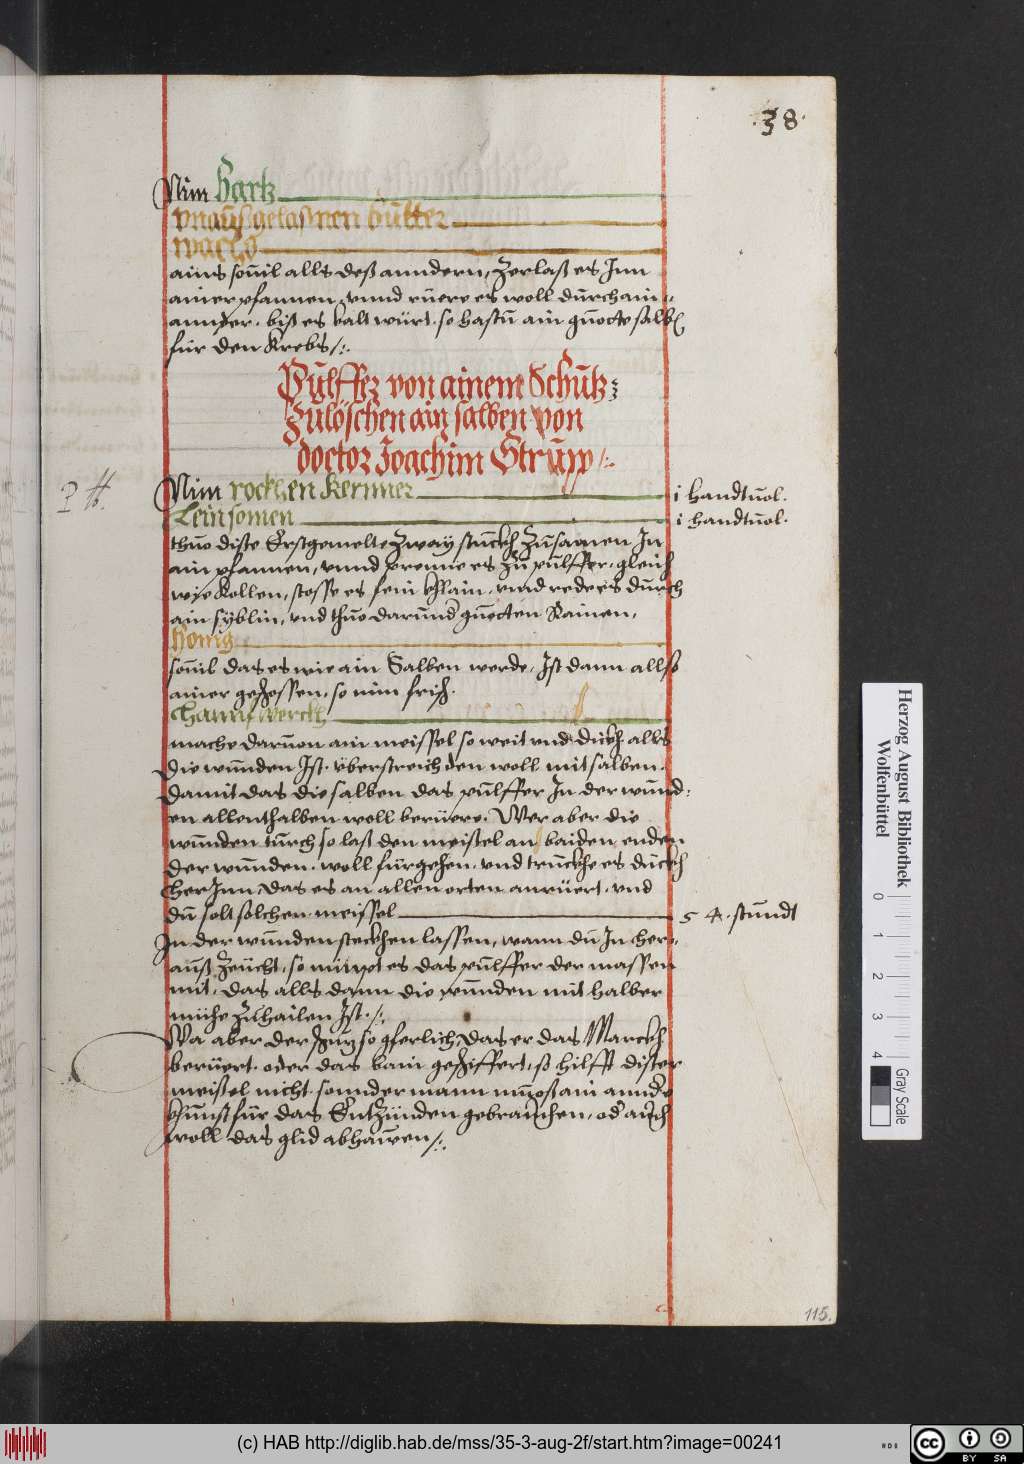 .38.
Nim Hartz
vnaußgelaßnen Butter
wachs
ains souil alls deß anndern, Zerlaß es Inn
ainer pfannen, vnnd rüere es woll durch ain=
annder. biß es kalt würt. so hastu ain guote salb
für den Krebs
Pulffer von ainem Schutz
Zulöschen ain salben von
doctor Joachim Strupp
Nim rockhen Kernner i handtuol.
Leinsomen i handtuol.
thuo diste Erstgemelte Zway stuckh Zusamen In
ain pfannen, vnnd prenne es Zu pulffer, gleich
wie Kollen, stosse es fein khlain, vnnd redes durch
ain syblin, vnd thuo darund guocten Rainen,
Honig
souil das es wie ain Salben werde, Ist dann allso
ainer geschossen, so nim frisch.
Hannf werckh
mache daruon ain meissel so weit vnd dickh alls
die wunden Ist. Überstreich den woll mit salben.
damit das die salben das pulffer In der wund=
en allenthalben woll berüere. Wer aber die
wunden durch so laß den meissel an baiden enden
der wunden. woll fürgehen. vnd truckhe es dückh
her Inn das es an allen orten anrüert. vnd
du solt solchen meissel 4. stundt
In der wunden steckhen lassen, wann du In her=
auß Zeücht, so nimpt es das pulffer der massen
mit, das alls dann die wunden mit halber
mühe Zuhailen Ist.
Wa aber der schuz so gferlich, das er das Marckh
berüert. oder das bain geschiffert, so hilfft diser
meissel nicht. sonnder mann muoß ain annder
khunst für das Entzünden gebrauchen, od auch
woll das glid abhawen
115.
Herzog August Bibliothek
Wolfenbüttel
0 1 2 3 4
Gray Scale
(c) HAB http://diglib.hab.de/mss/35-3-aug-2f/start.htm?image=00241
cc BY SA